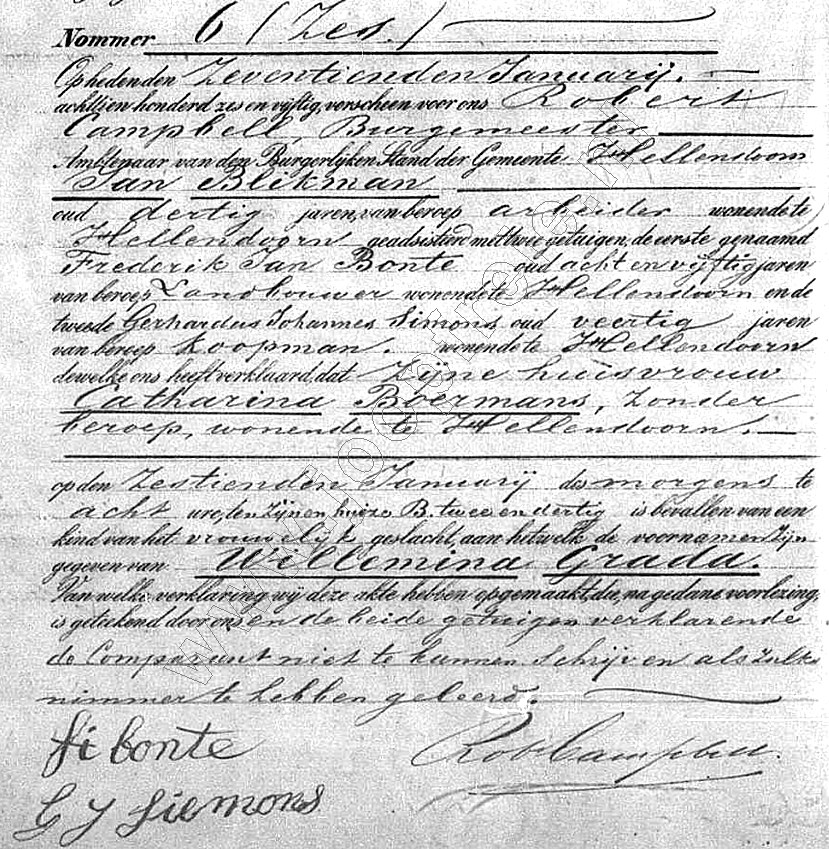 Nommer 6 (Zes.)
Op heden den Zeventienden Januarij.
achttien honderd zes en vijftig, verscheen voor ons Robert
Campbell, Burgemeester
Ambtenaar van den Burgerlijken Stand der Gemeente Hellendoorn
Jan Blikman
oud dertig jaren, van beroep arbeider wonende te
Hellendoorn geadsisteerd met twee getuigen, de eerste genaamd
Frederik Jan Bonte oud acht en vijftig jaren
van beroep Landbouwer wonende te Hellendoorn en de
tweede Gerhardus Johannes Simons oud veertig jaren
van beroep Koopman. wonende te Hellendoorn
dewelke ons heeft verklaard, dat Zijne huisvrouw
Catharina Boermans, Zonder
beroep, wonende te Hellendoorn.
op den Zestienden Januarij des morgens te
acht ure, ten Zijnen huize B. twee en dertig is bevallen van een
kind van het vrouwelijk geslacht, aan hetwelk de voornamen Zijn
gegeven van Willemina Grada.
Van welke verklaring wij deze akte hebben opgemaakt, die, na gedane voorlezing,
is geteekend door ons en de beide getuigen verklarende
de Comparant niet te kunnen Schrijven als Zulks
nimmer te hebben geleerd.
bonte
Robt Campbell.
G J Siemons
www.joosfreie.nl